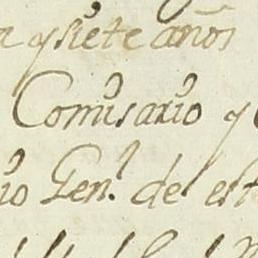 y siete años
Comisario y
io Gen.l de est